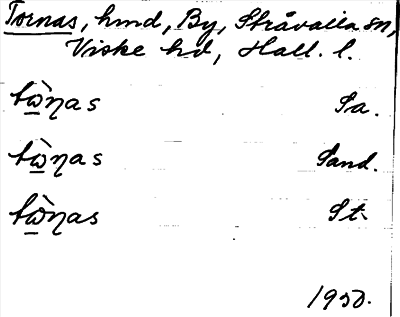 Tornas, hmd, By, Stråvalla sn,
Viske hd, Hall. l.
tὼ̲ηas Sa.
tὼ̲ηas Sand.
tὼ̲ηas St.